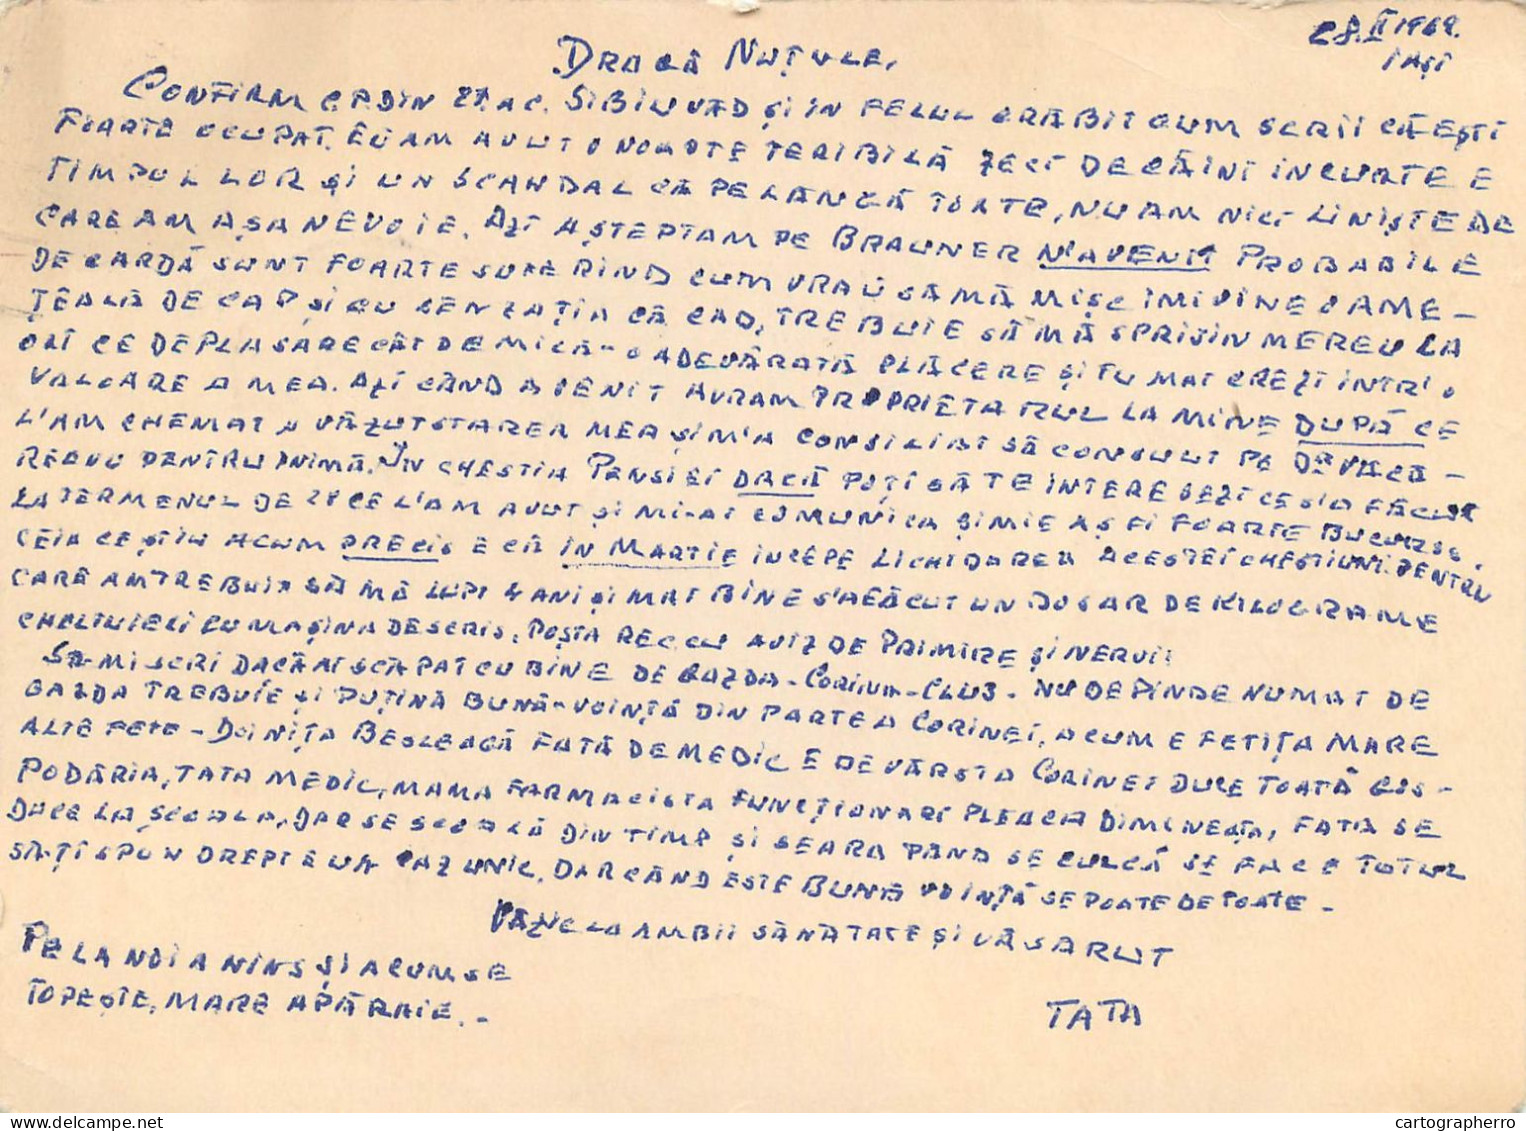 28.II 1969.
IAȘI
DRAGĂ NUȚULE,
CONFIRM C.P. DIN 27 AC. SIBIU VĂD ȘI IN FELUL GRĂBIT CUM SCRII CĂ EȘTI
FOARTE OCUPAT. EU AM AVUT O NOAPTE TERIBILĂ ZECI DE CĂINI IN CURTE E
TIMPUL LOR ȘI UN SCANDAL CĂ PE LÂNGĂ TOATE, NU AM NICI LINIȘTE DE
CARE AM AȘA NEVOIE. AZI AȘTEPTAM PE BRAUNER N'A VENIT PROBABILE
DE GARDĂ SUNT FOARTE SUFERIND CUM VRAU SĂ MĂ MIȘC IMI VINE O AME-
ȚEALĂ DE CAP ȘI CU SENZAȚIA CĂ CAD, TREBUIE SĂ MĂ SPRIJIN MEREU LA
ORI CE DEPLASARE CÂT DE MICĂ - O ADEVĂRATĂ PLĂCERE ȘI TU MAI CREZI INTR'O
VALOARE A MEA. AZI CÂND A VENIT AVRAM PROPRIETARUL LA MINE DUPĂ CE
L'AM CHEMAT A VĂZUT STAREA MEA ȘI M'A CONSILIAT SĂ CONSULT PE DE VĂCĂ-
REANU PENTRU INIMĂ. IN CHESTIA PENSIEI DACĂ POȚI SĂ TE INTERESEZI CE S'A FĂCUT
LA TERMENUL DE 27 CE L'AM AVUT ȘI MI-AI COMUNICA ȘI MIE AȘ FI FOARTE BUCUROS.
CEIA CE ȘTIU ACUM PRECIS E CĂ IN MARTIE INCEPE LICHIDAREA ACESTEI CHESTIUNI PENTRU
CARE AM TREBUIT SĂ MĂ LUPT 4 ANI ȘI MAI BINE S'A FĂCUT UN DOSAR DE KILOGRAME
CHELTUIELI CU MAȘINA DE SCRIS, POȘTA REC CU AVIZ DE PRIMIRE ȘI NERVII
SĂ-MI SCRI DACĂ AI SCĂPAT CU BINE DE GAZDA - CORINA - CLUJ - NU DEPINDE NUMAI DE
GAZDA TREBUIE ȘI PUȚINĂ BUNĂ-VOINȚĂ DIN PARTEA CORINEI, ACUM E FETIȚA MARE
ALTE FETE - DOINIȚA BEGLEAGĂ FATĂ DE MEDIC E DE VÂRSTA CORINEI DUCE TOATĂ GOS-
PODĂRIA, TATA MEDIC, MAMA FARMACISTA FUNCȚIONARI PLEACĂ DIMINEAȚA, FATA SE
DUCE LA ȘCOALA, DAR SE SCOALĂ DIN TIMP ȘI SEARA PÂNĂ SE CULCĂ SE FACE TOTUL
SĂ-ȚI SPUN DREPT E UN CAZ UNIC. DAR CÂND ESTE BUNĂ VOINȚĂ SE POATE DE TOATE -
LA AMBII SĂNĂTATE ȘI VĂ SARUT
PE LA NOI A NINS ȘI ACUM SE
TOPEȘTE, MARE APĂRAIE. -
TATA
cartographerro